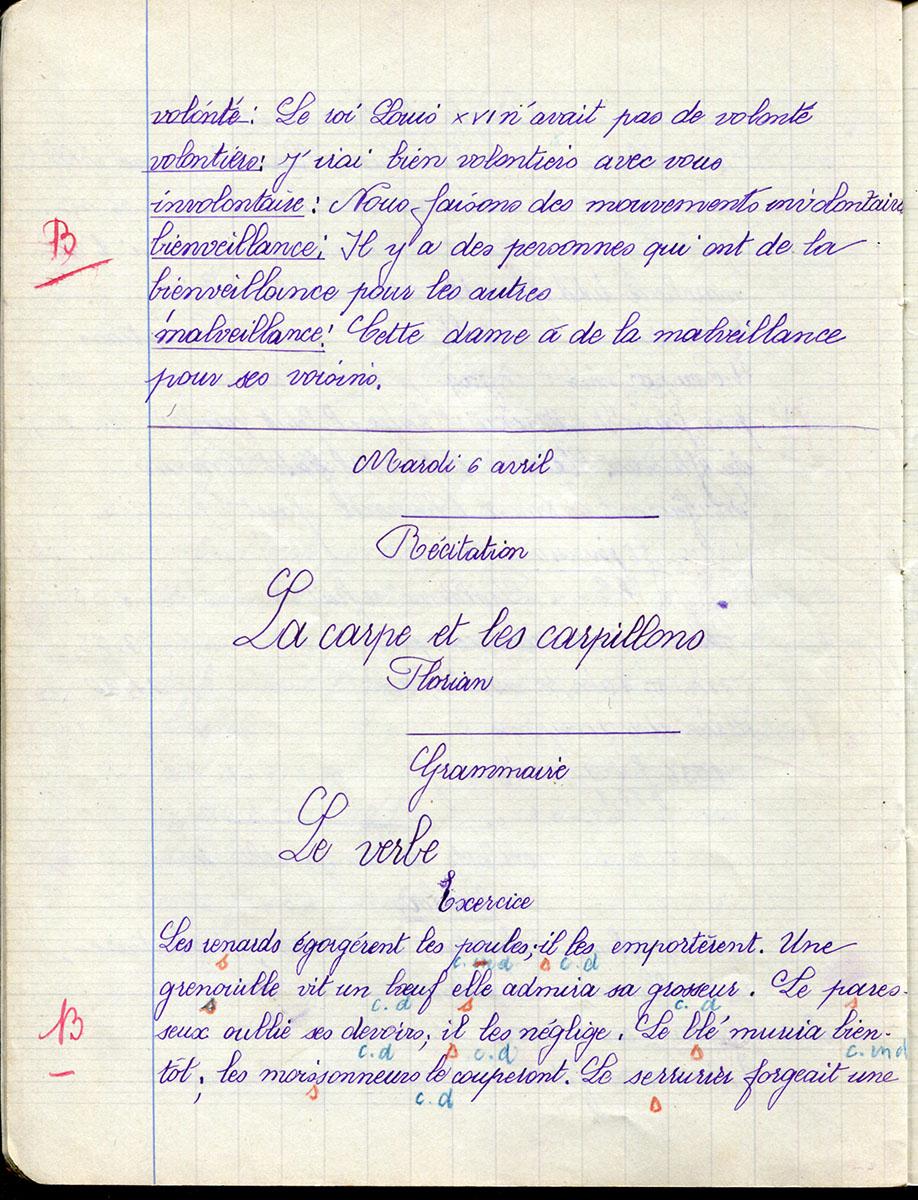 volonté : Le roi Louis XVI n'avait pas de volonté
volontiers : J'irai bien volontiers avec vous
involontaire : Nous faisons des mouvements involontaire
B
bienveillance : Il y a des personnes qui ont de la
bienveillance pour les autres
malveillance : Cette dame à de la malveillance
pour ses voisins.
Mardi 6 avril
Récitation
La carpe et les carpillons
Florian
Grammaire
Le verbe
Exercice
Les renards égorgèrent les poules ; il les emportèrent. Une
s c.d s c.d
grenouille vit un bœuf elle admira sa grosseur. Le pares-
s c.d s c.d s
B
seux oublie ses devoirs, il les néglige. Le blé murira bien-
c.d s c.d s c.ind
tôt, les moissonneurs le couperont. Le serrurier forgeait une
s c.d s